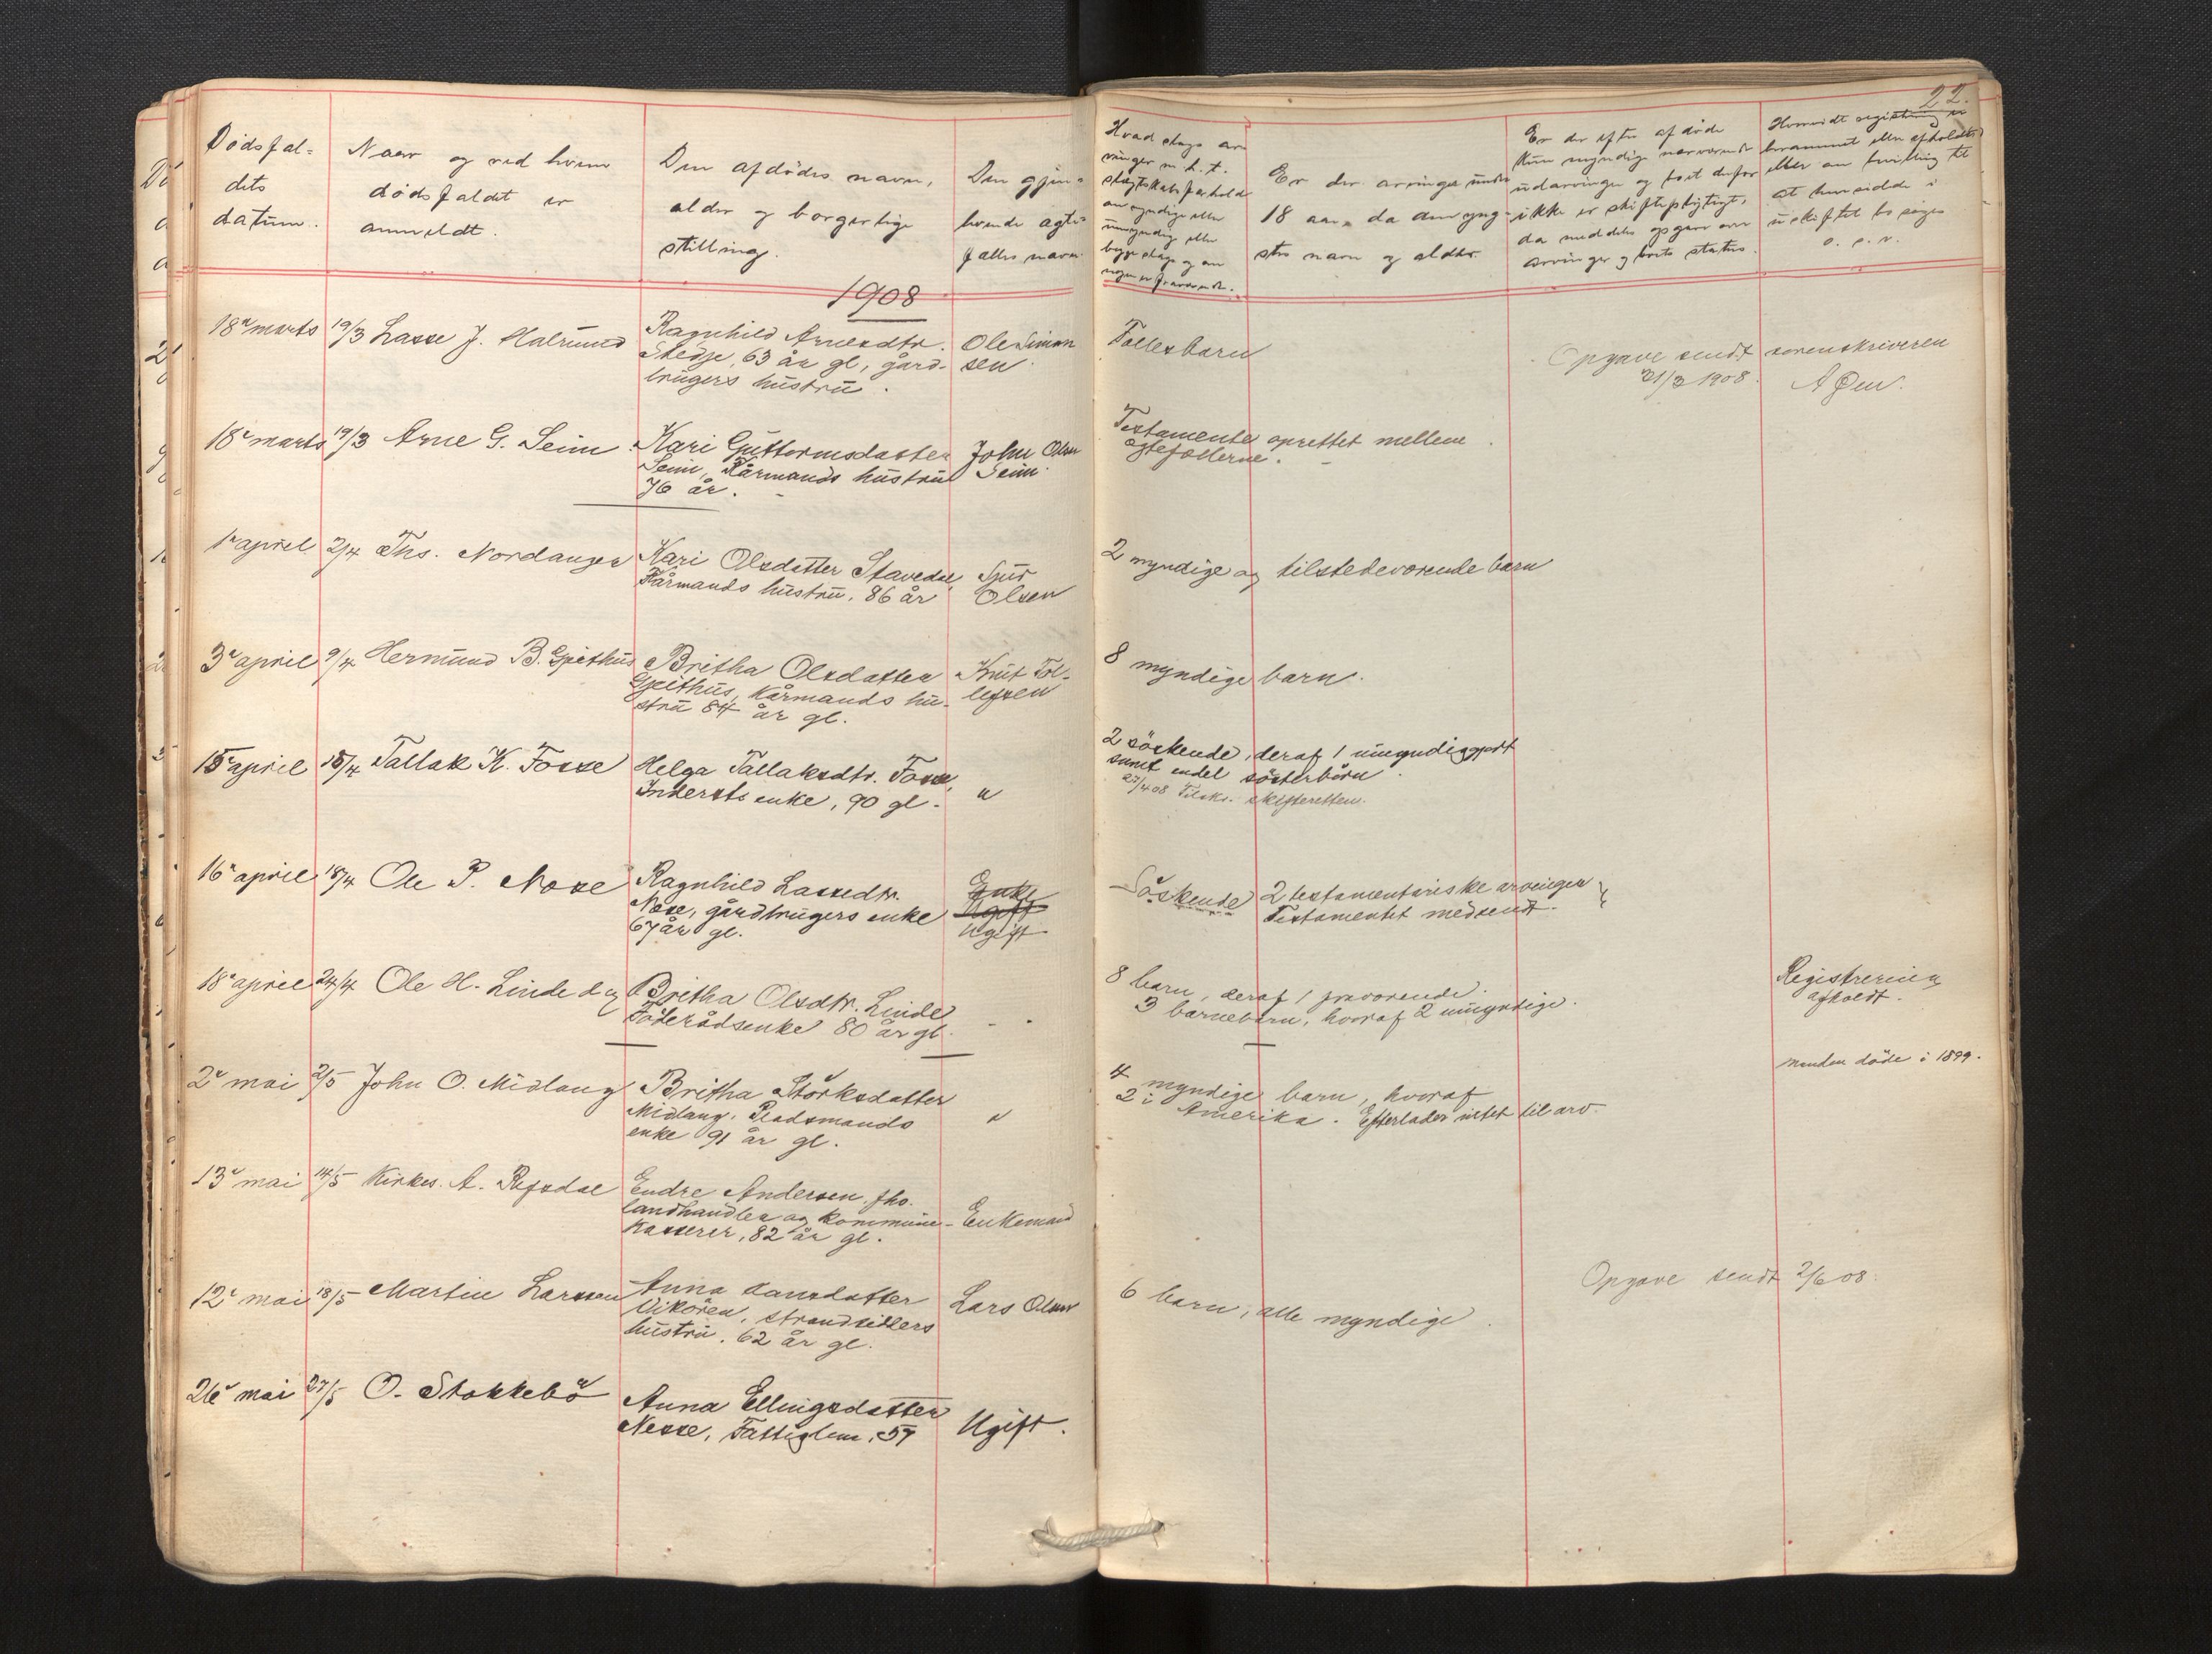 22.
Dødsfal-
dets
datum.
Naar og ved hvem
dødsfaldet er
anmeldt.
Den afdødes navn,
alder og borgerlige
stilling.
Den gjen-
levende ægte-
fælles navn
Hvad slags ar-
vinger m. h. t.
slægtskabsforhold
om myndige eller
umyndig eller
begge slags og om
nogen er fraværende.
Er der arvinger under
18 aar, da den yng-
stes navn og alder.
Er der efter afdøde
kun myndige nærværende
udarvinger og boet derfor
ikke er skiftepligtigt,
da meddeles opgave over
arvinger og boets status.
Hvorvidt registrering er
berammet eller afholdt
eller om bevilling til
at hensidde i
uskiftet bo søges
o. s. v.
1908
18de marts 19/3 Lasse J. Halrund
Ragnhild Arnesdtr.
Stedje, 63 år gl, gård-
brugers hustru.
Ole Simon
sen.
Fællesbarn
Opgave sendt sorenskriveren
21/3 1908.
18de marts 19/3 Arne G. Seim
Kari Guttormsdatter
Seim, Kårmands hustru
76 år.
John Olsen
Seim.
Testamente oprettet mellem
ægtefællerne.
1ste april 2/4 Ths. Nordanger
Kari Olsdatter Stavedal,
Kårmands hustru, 86 år
Sjur
Olsen
2 myndige og tilstedeværende barn
3de april 9/4 Hermund B. Gjeithus
Britha Olsdatter
Gjeithus, Kårmands hu-
stru 84 år gl.
Knut Tol-
lefsen
8 myndige barn.
15de april 15/4 Tallak K. Fosse
Helga Tallaksdtr. Fosse,
Indersts enke, 90 gl.
"
2 söskende, deraf 1 umyndiggjort
samt endel sösterbörn.
27/4 08 Tilskr. skifteretten.
16de april 18/4 Ole P. Nose
Ragnhild Lassedtr.
Nose, gårdbrugers enke
67 år gl.
Enke
Ugift
Ugift
Söskende 2 testamentariske arvinger
Testamentet medsendt.
18de april 24/4 Ole H. Linde d.y.
Britha Olsdtr. Linde
Föderådsenke 80 år gl.
8 barn, deraf 1 fraværende.
3 barnebarn, hvoraf 2 umyndige.
Registrering
afholdt.
2den mai 2/5 John O. Midlang
Britha Störksdatter
Midlang, Pladsmands
enke 91 år gl.
"
4 myndige barn, hvoraf
2 i Amerika. Efterlader intet til arv.
Manden döde i 1899.
13de mai 14/5 Kirkes. A. Refsdal
Endre Andersen, fhv.
landhandler og kommune-
kasserer, 82 år gl.
Enkemand
12te mai 18/5 Martin Larssen
Anna Hansdatter
Vikören, strandsidders
hustru, 62 år gl.
Lars Olsen
6 barn, alle myndige.
Opgave sendt 2/6 08.
26de mai 27/5 O. Stokkebö
Anna Ellingsdatter
Nesse, Fattiglem, 57
Ugift.